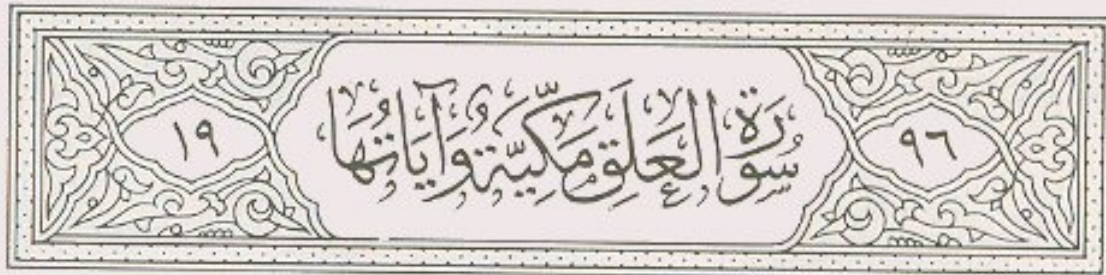 ٩٦ سُورَةُ الْعَلَقِ مَكِّيَّةٌ وَآيَاتُهَا ١٩